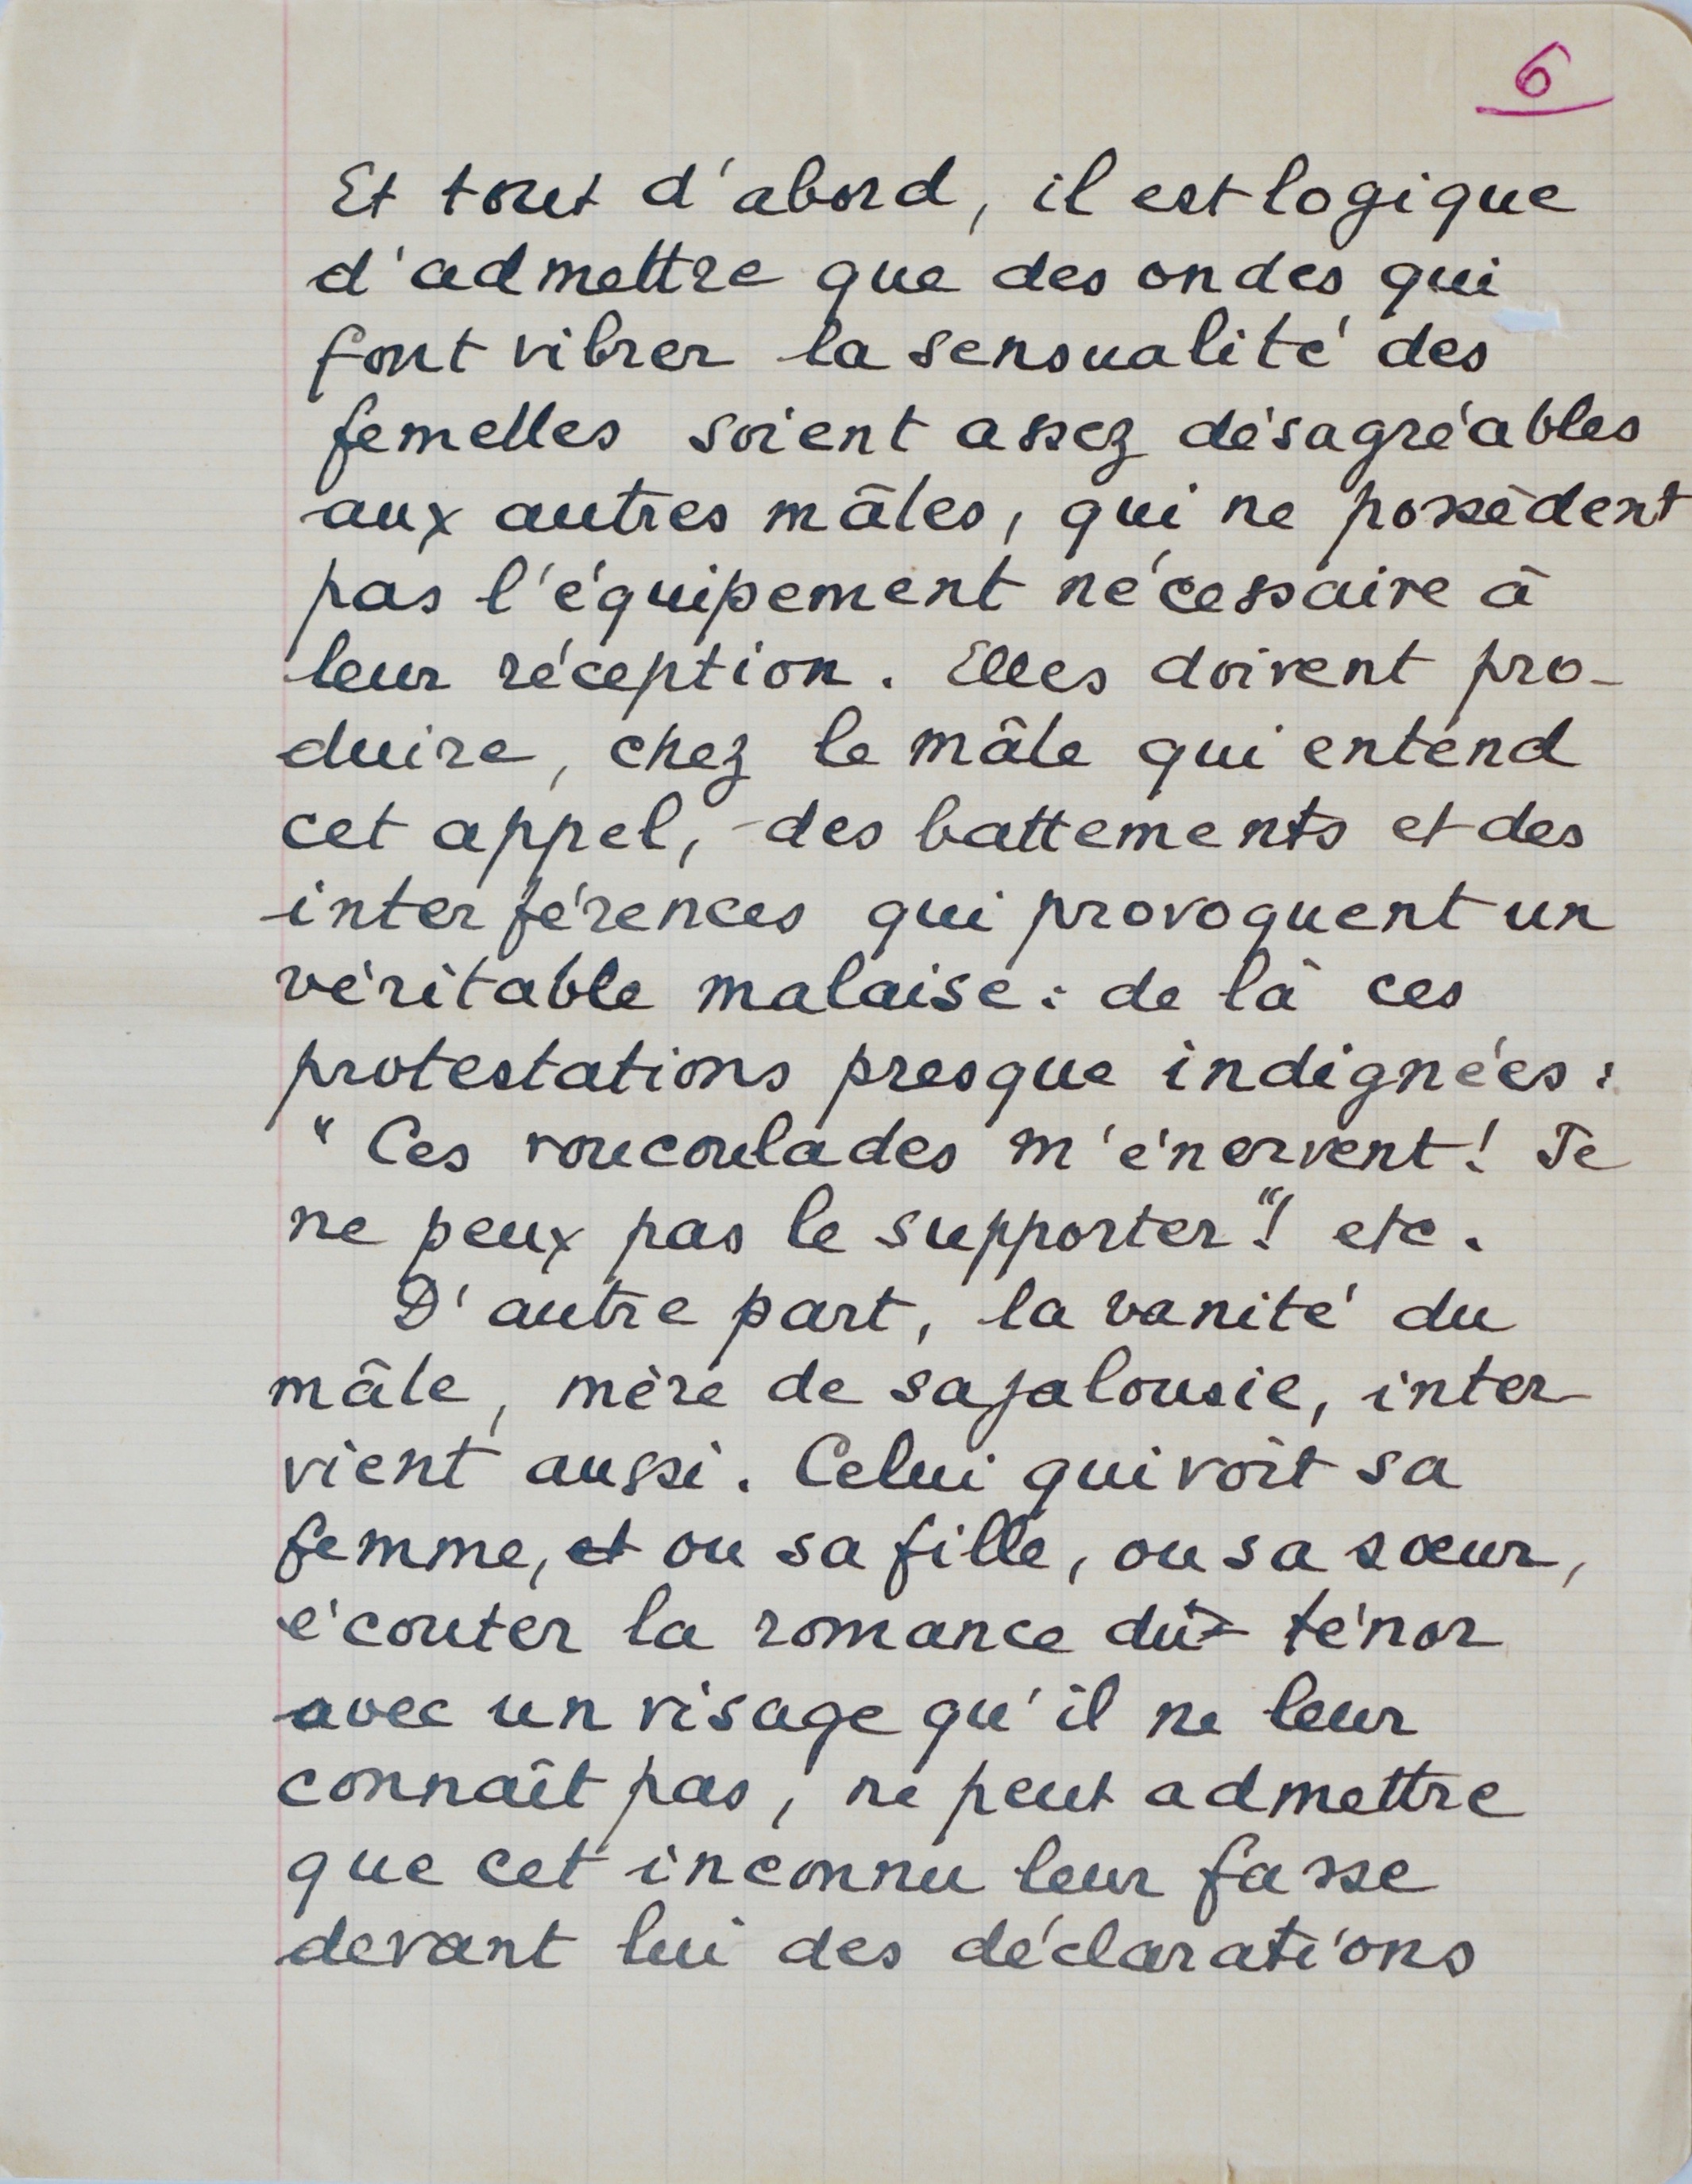 6
Et tout d'abord, il est logique
d'admettre que des ondes qui
font vibrer la sensualité des
femelles soient assez désagréables
aux autres mâles, qui ne possèdent
pas l'équipement nécessaire à
leur réception. Elles doivent pro-
duire, chez le mâle qui entend
cet appel, des battements et des
interférences qui provoquent un
véritable malaise : de là ces
protestations presque indignées :
"Ces roucoulades m'énervent! Je
ne peux pas le supporter"! etc.
D'autre part, la vanité du
mâle, mère de sa jalousie, inter-
vient aussi. Celui qui voit sa
femme, et ou sa fille, ou sa sœur,
écouter la romance du ténor
avec un visage qu'il ne leur
connaît pas, ne peut admettre
que cet inconnu leur fasse
devant lui des déclarations